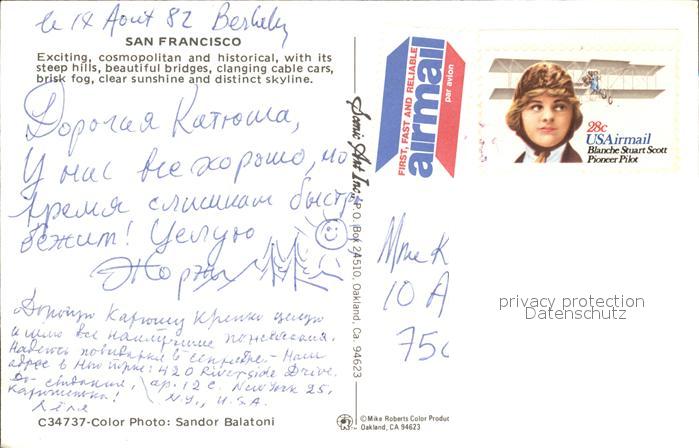 le 14 Août 82 Berkeley
SAN FRANCISCO
Exciting, cosmopolitan and historical, with its
steep hills, beautiful bridges, clanging cable cars,
brisk fog, clear sunshine and distinct skyline.
Дорогая Катюша,
У нас все хорошо, но
время слишком быстро
бежит! Целую
Жорж
Дорогую Катюшу крепко целую
и шлю все наилучшие пожелания.
Надеюсь повидаться в сентябре - Наш
адрес в Нью Йорке: 420 Riverside Drive.
До свидания, ap. 12 C. New York 25,
Катюшенька! N.Y., U.S.A.
Лёля
C34737-Color Photo: Sandor Balatoni
Scenic Art Inc., P.O. Box 24510, Oakland, Ca. 94623
FIRST, FAST AND RELIABLE
airmail
par avion
28c
USAirmail
Blanche Stuart Scott
Pioneer Pilot
Mme K
10 A
750
privacy protection
Datenschutz
©Mike Roberts Color Produc
Oakland, CA. 94623